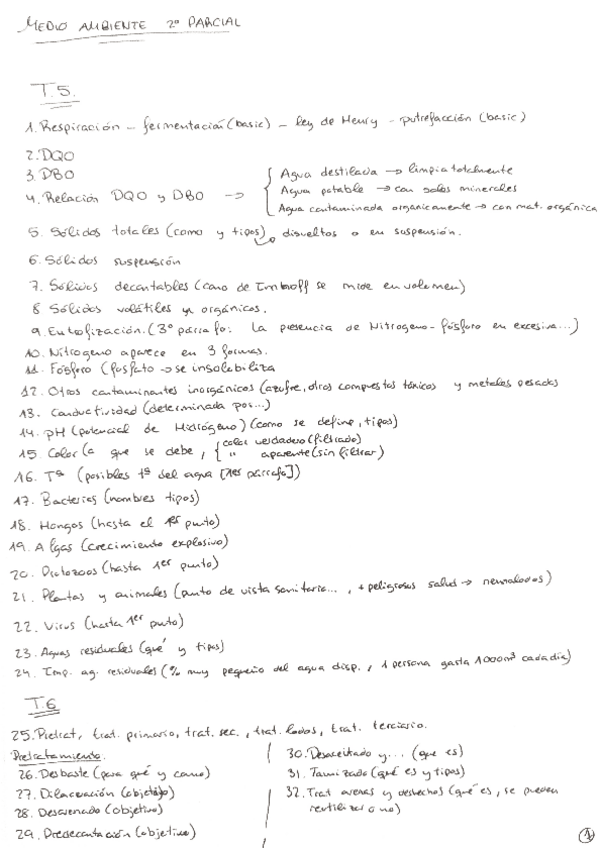 MEDIO AMBIENTE 2º PARCIAL
T.5.
1. Respiración – fermentación (basic) – ley de Henry – putrefacción (basic)
2. DQO
3. DBO
4. Relación DQO y DBO →
Agua destilada → limpia totalmente
Agua potable → con sales minerales
Agua contaminada organicamente → con mat. orgánica
5. Sólidos totales (como y tipos) → disueltos o en suspensión.
6. Sólidos suspensión
7. Sólidos decantables (cono de Imhoff se mide en volumen)
8 Sólidos volátiles y orgánicos.
9. Eutrofización. (3º párrafo: La presencia de Nitrogeno-fósforo en excesiva...)
10. Nitrogeno aparece en 3 formas.
11. Fósforo (fosfato → se insolubiliza
12. Otros contaminantes inorgánicos (azufre, otros compuestos tóxicos y metales pesados
13. Conductividad (determinada por...)
14. pH (potencial de Hidrógeno) (como se define, tipos)
15 Color (a que se debe, { color verdadero (filtrado)
" aparente (sin filtrar)
16. Tª (posibles tª del agua [1er párrafo])
17. Bacterias (nombres tipos)
18. Hongos (hasta el 1er punto)
19. Algas (crecimiento explosivo)
20. Protozoos (hasta 1er punto)
21. Plantas y animales (punto de vista sanitario..., + peligrosos salud → nematodos)
22. Virus (hasta 1er punto)
23. Aguas residuales (qué y tipos)
24. Imp. ag. residuales (% muy pequeño del agua disp., 1 persona gasta 1000m³ cada día)
T.6
25. Pretrat, trat. primario, trat. sec., trat. lodos, trat. terciario.
Pretratamiento.
26. Desbaste (para qué y como)
27. Dilaceración (objetivo)
28. Desarenado (objetivo)
29. Predecantación (objetivo)
30. Desaceitado y... (que es)
31. Tamizado (qué es y tipos)
32. Trat arenas y deshechos (qué es, se pueden
reutilizar o no)
1